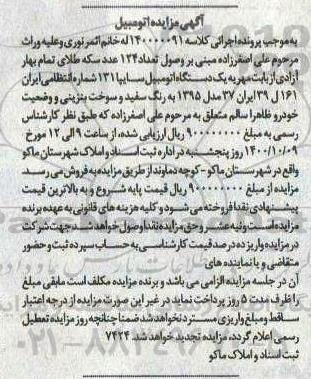 آگهی مزایده اتومبیل
به موجب پرونده اجرائی کلاسه ۱۴۰۰۰۰۰۹۱ له خانم اثمر نوری و علیه وراث
مرحوم علی اصفرزاده مبنی بر وصول تعداد ۱۲۴ عدد سکه طلای تمام بهار
آزادی از بابت مهریه یک دستگاه اتومبیل سایپا ۱۳۱ شماره انتظامی ایران
۱۶۱ ل ۳۹ ایران ۳۷ مدل ۱۳۹۵ به رنگ سفید و سوخت بنزینی و وضعیت
خودرو ظاهرا سالم متعلق به مرحوم علی اصفرزاده که طبق نظر کارشناس
رسمی به مبلغ ۹۰۰۰۰۰۰۰۰ ریال ارزیابی شده، از ساعت ۹ الی ۱۲ مورخ
۱۴۰۰/۱۰/۰۹ روز پنجشنبه در اداره ثبت اسناد و املاک شهرستان ماکو
واقع در شهرستان ماکو - کوچه دماوند از طریق مزایده به فروش می رسد
مزایده از مبلغ ۹۰۰۰۰۰۰۰۰ ریال قیمت پایه شروع و به بالاترین قیمت
پیشنهادی نقدا فروخته می شود و کلیه هزینه های قانونی به عهده برنده
مزایده است و نیم عشر و حق مزایده نقدا وصول خواهد شد جهت شرکت
در مزایده واریز ده درصد قیمت کارشناسی به حساب سپرده ثبت و حضور
متقاضی و یا نماینده های
آن در جلسه مزایده الزامی می باشد و برنده مزایده مکلف است مابقی مبلغ
را ظرف مدت ۵ روز پرداخت نماید در غیر این صورت مزایده از درجه اعتبار
ساقط و مبلغ واریزی مسترد نخواهد شد ضمنا چنانچه روز مزایده تعطیل
رسمی اعلام گردد، مزایده تجدید خواهد شد. ۷۴۲۴
ثبت اسناد و املاک ماکو